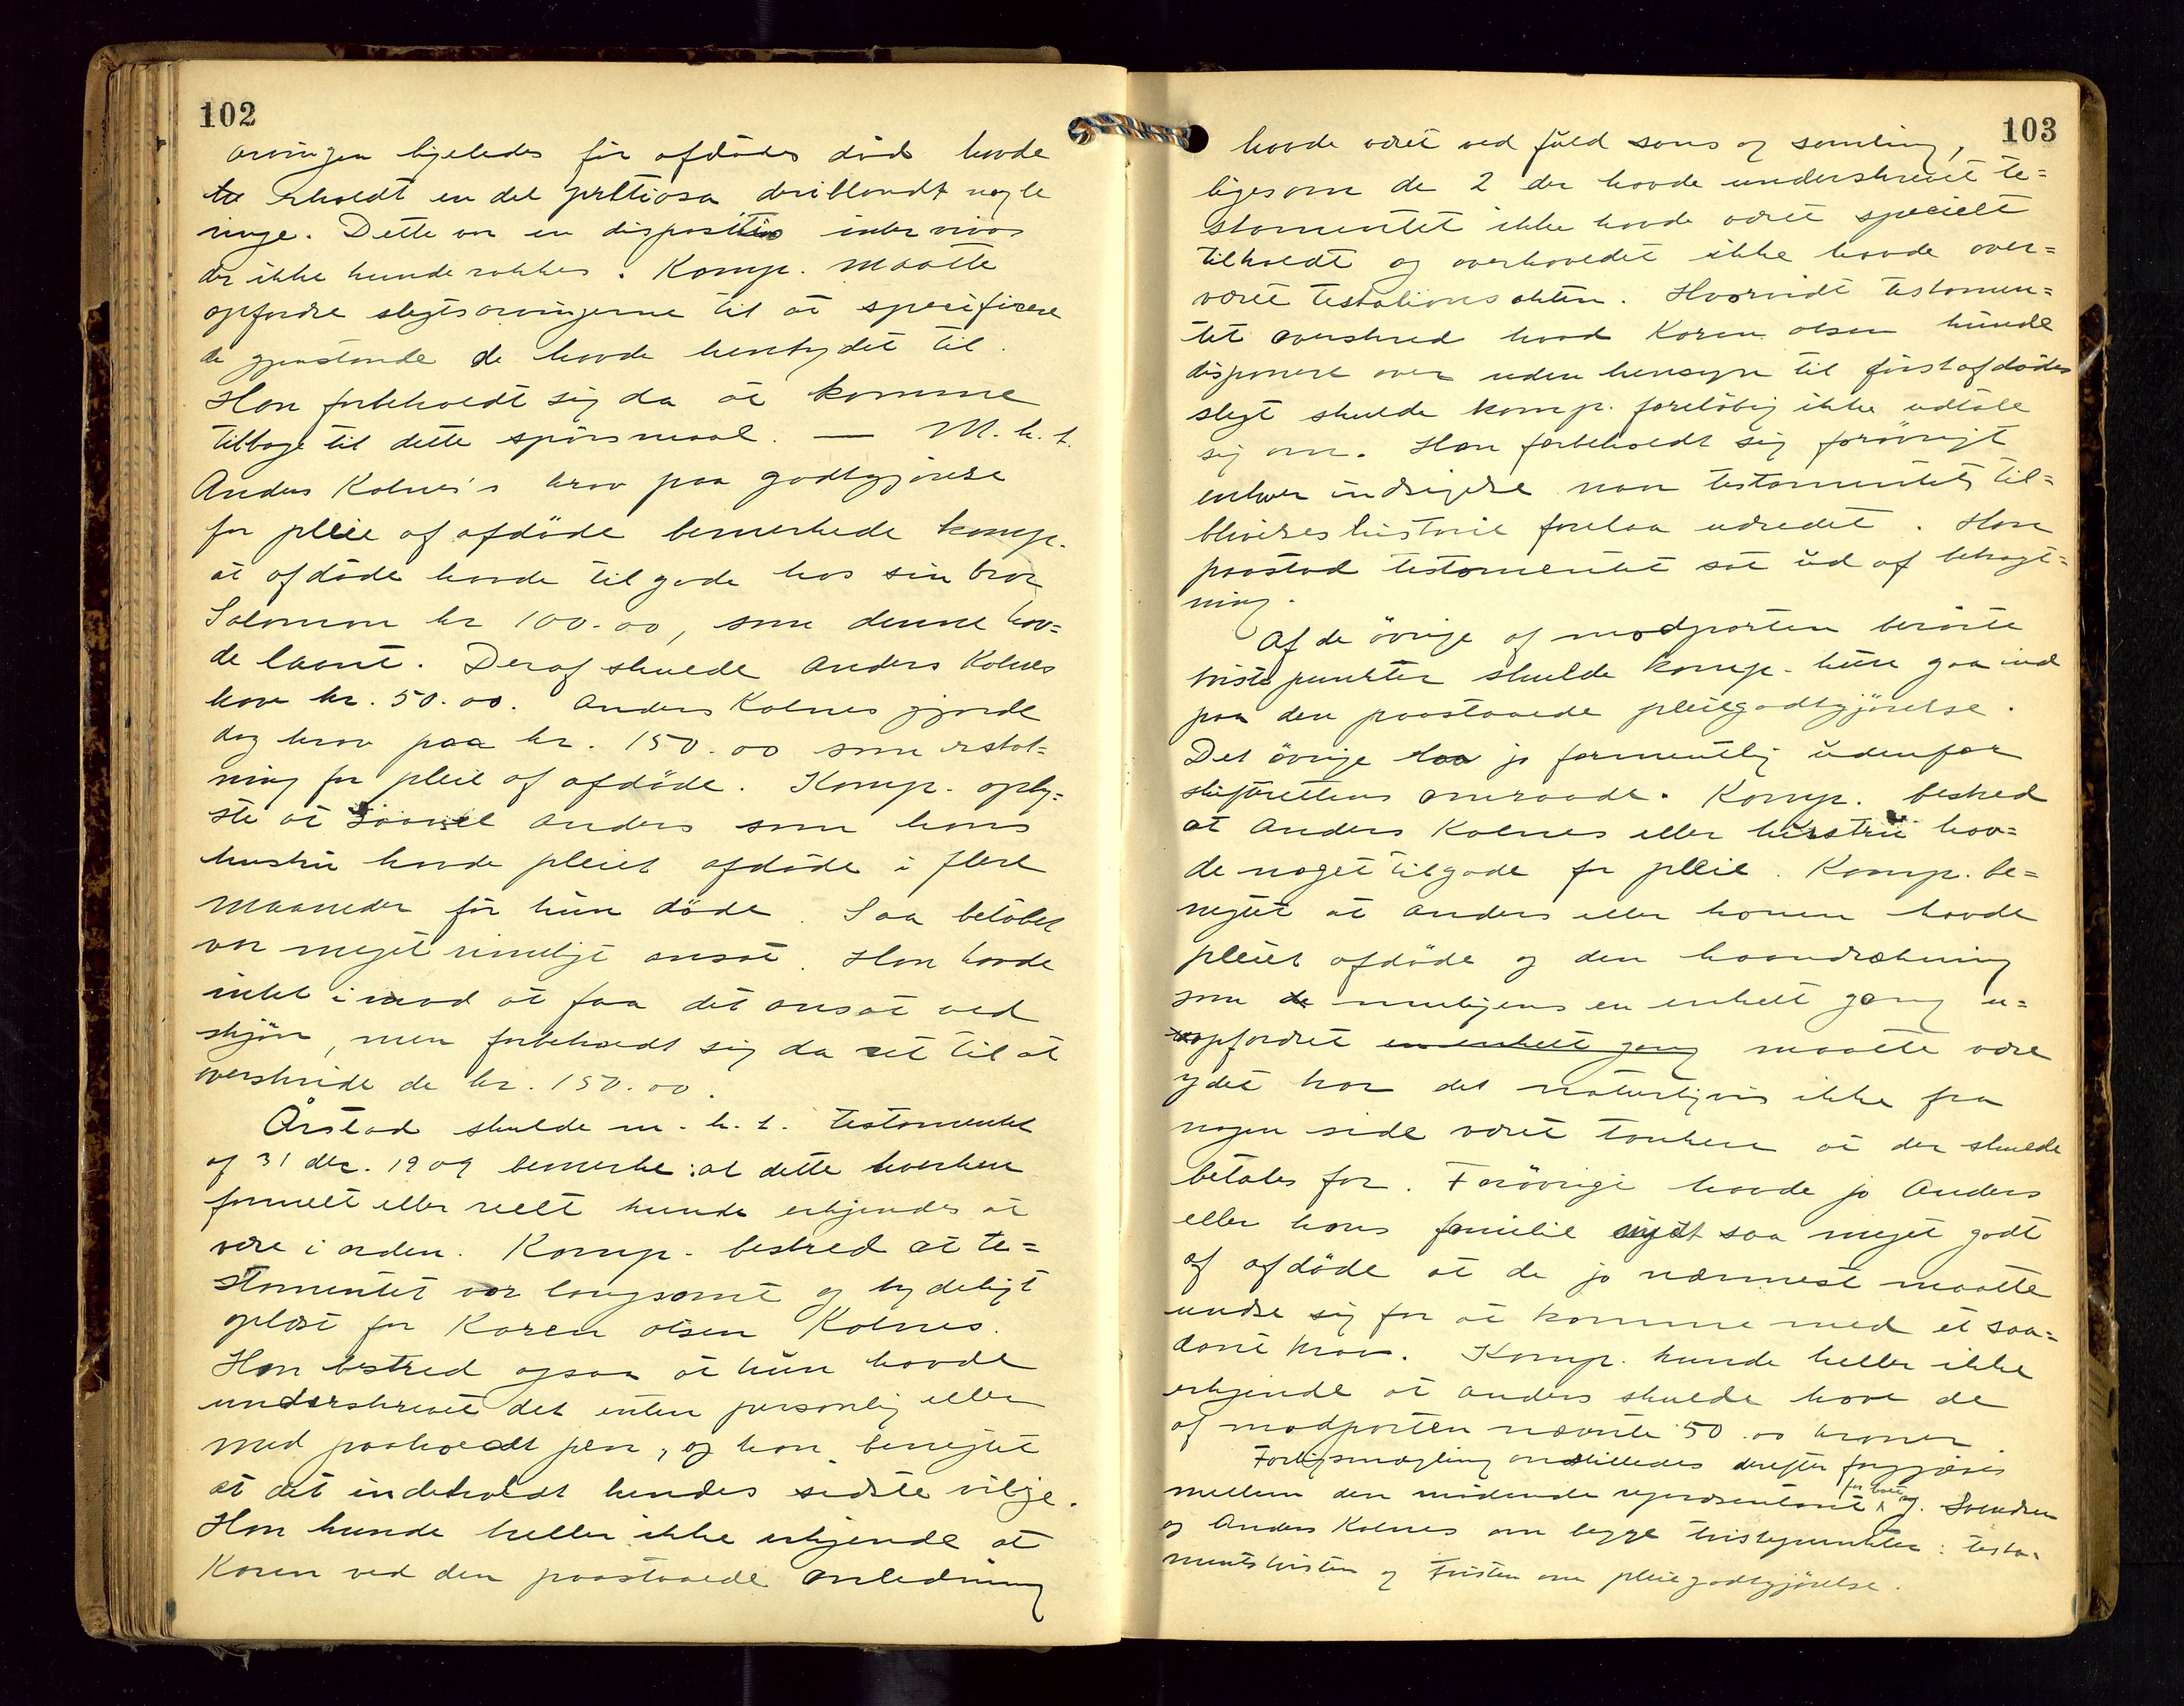 102
arvingen ligeledes før afdødes død havde
erholdt en del prettiosa deriblandt nogle
ringe. Dette var en disposition inter vivos
der ikke kunde rokkes. Komp. maatte
opfordre slegtsarvingerne til at specificere
de gjenstande de havde hentydet til.
Han forbeholdt sig da at komme
tilbage til dette spørsmaal. — M. h. t.
Anders Kolnes's krav paa godtgjørelse
for pleie af afdøde bemerkede komp.
at afdøde havde tilgode hos sin bror
Salomon kr 100.00, som denne hav=
de laant. Deraf skulde Anders Kolnes
have kr. 50.00. Anders Kolnes gjorde
dog krav paa kr. 150.00 som erstat=
ning for pleie af afdøde. Komp. oply=
ste at saavel Anders som hans
hustru havde pleiet afdøde i flere
maaneder før hun døde. Saa beløbet
var meget rimeligt ansat. Han havde
intet imod at faa det ansat ved
skjøn, men forbeholdt sig da ret til at
overskride de kr. 150.00.
Årstad skulde m. h. t. testamentet
af 31 dec. 1909 bemerke: at dette hverken
formelt eller reelt kunde erkjendes at
være i orden. Komp. bestred at te=
stamentet var langsomt og tydeligt
oplæst for Karen Olsen Kolnes.
Han bestred ogsaa at hun havde
underskrevet det enten personlig eller
med paaholdt pen, og han benegtet
at det indeholdt hendes sidste vilje.
Han kunde heller ikke erkjende at
Karen ved den paastaaede anledning
103
havde været ved fuld sans og samling,
ligesom de 2 der havde underskrevet te=
stamentet ikke havde været specielt
tilkaldt og overhovedet ikke havde over=
været testationsakten. Hvorvidt testamen=
tet overskred hvad Karen Olsen kunde
disponere over uden hensyn til førstafdødes
slegt skulde komp. foreløbig ikke udtale
sig om. Han forbeholdt sig forøvrigt
enhver indsigelse naar testamentets til=
blivelseshistorie forelaa udredet. Han
paastod testamentet sat ud af betragt=
ning.
Af de øvrige af modparten berørte
tvistepunkter skulde komp. kun gaa ind
paa den paastaaede pleiegodtgjørelse.
Det øvrige laa jo formentlig udenfor
skifterettens omraade. Komp. bestred
at Anders Kolnes eller hustru hav=
de noget tilgode for pleie. Komp. be=
negtet at Anders eller konen havde
pleiet afdøde og den haandrækning
som muligens en enkelt gang u=
opfordret en enkelt gang maatte være
ydet har det naturligvis ikke fra
nogen side været tanken at der skulde
betales for. Forøvrigt havde jo Anders
eller hans familie nydt saa meget godt
af afdøde at de jo nærmest maatte
undse sig for at komme med et saa=
dant krav. Komp. kunde heller ikke
erkjende at Anders skulde have de
af modparten nævnte 50.00 kroner.
Forligsmægling anstilledes derefter forgjæves
mellem den mødende repræsentant for boet og Svendsen
og Anders Kolnes om begge tvistepunkter: testa=
mentstvisten og tvisten om pleiegodtgjørelse.